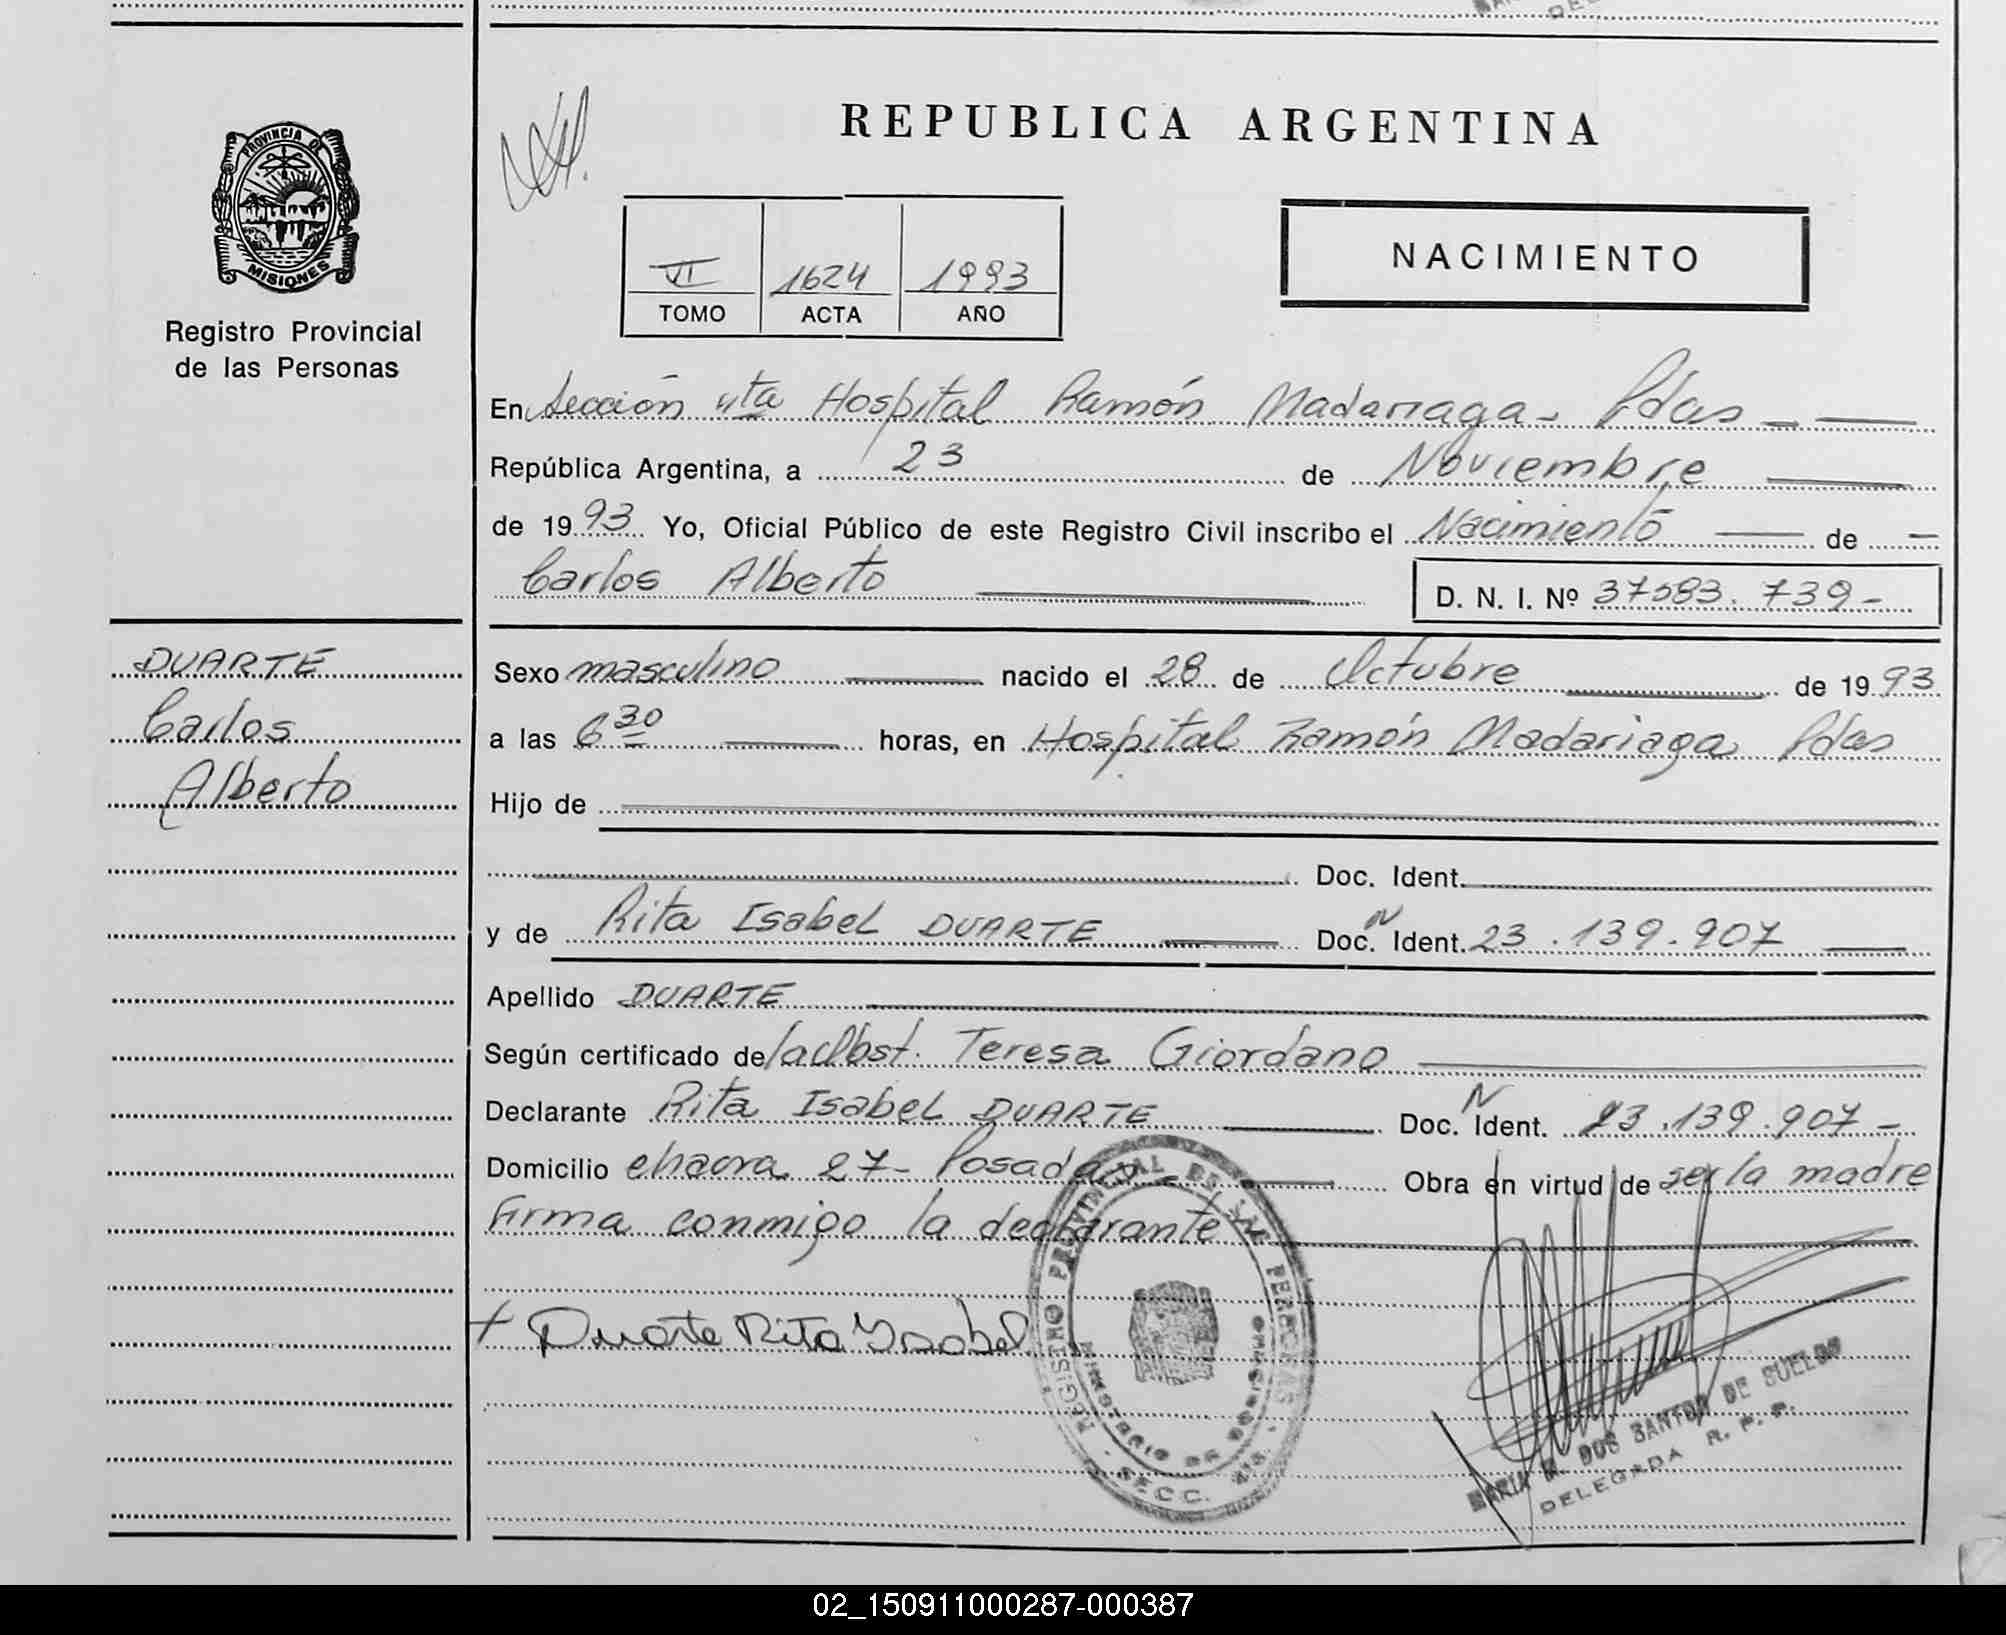 PROVINCIA DE
MISIONES
Registro Provincial
de las Personas
DUARTE
Carlos
Alberto
REPUBLICA ARGENTINA
VI 1624 1993
TOMO ACTA AÑO
NACIMIENTO
En Sección 4ta Hospital Ramón Madariaga - Pdas
República Argentina, a 23 de Noviembre
de 1993 Yo, Oficial Público de este Registro Civil inscribo el Nacimiento de
Carlos Alberto D. N. I. Nº 37583.739-
Sexo masculino nacido el 28 de Octubre de 1993
a las 6 30 horas, en Hospital Ramón Madariaga Pdas
Hijo de
Doc. Ident.
y de Rita Isabel DUARTE Doc. N Ident. 23.139.907
Apellido DUARTE
Según certificado de la Obst. Teresa Giordano
Declarante Rita Isabel DUARTE Doc. N Ident. 23.139.907-
Domicilio chacra 27- Posadas Obra en virtud de ser la madre
firma conmigo la declarante
+ Duarte Rita Ysabel
REGISTRO PROVINCIAL DE LAS PERSONAS
MINISTERIO DE GOBIERNO
SECC.
MARIA DOS SANTOS DE SUELDO
DELEGADA R. P. P.
02_150911000287-000387